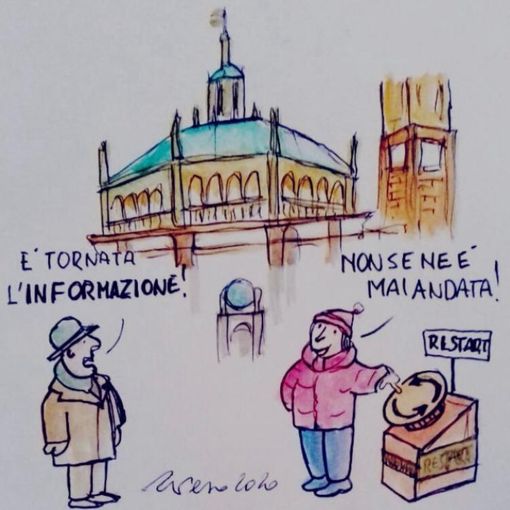 E' TORNATA
L'INFORMAZIONE!
NON SE NE È
MAI ANDATA!
RESTART
2020